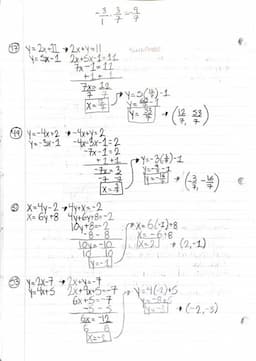 -3/1 · 3/7 = -9/7
47 y=2x+11 → 2x+y=11
y=5x-1 2x+5x-1=11
7x-1=11
+1 +1
7x=12
7 7
x=12/7
y=5(12/7)-1
y=53/7
→ (12/7, 53/7)
49 y=-4x+2 → -4x+y=2
y=-3x-1 -4x-3x-1=2
-7x-1=2
+1 +1
-7x=3
-7 -7
→ y=-3(3/7)-1
y=-9/7-1
y=-16/7
x=4y-2 → 4y+x=-2
x=6y+8 4y+6y+8=-2
10y+8=-2
-8 -8
10y=-10
10 10
y=-1
→ x=6(-1)+8
x=-6+8
x=2
→ (2,-1)
y=2x-7 → 2x+y=-7
y=4x+5 2x+4x+5=-7
6x+5=-7
-5 -5
6x=-12
6 6
x=-2
→ y=4(-2)+5
y=-8+5
y=-3
→ (-2,-3)